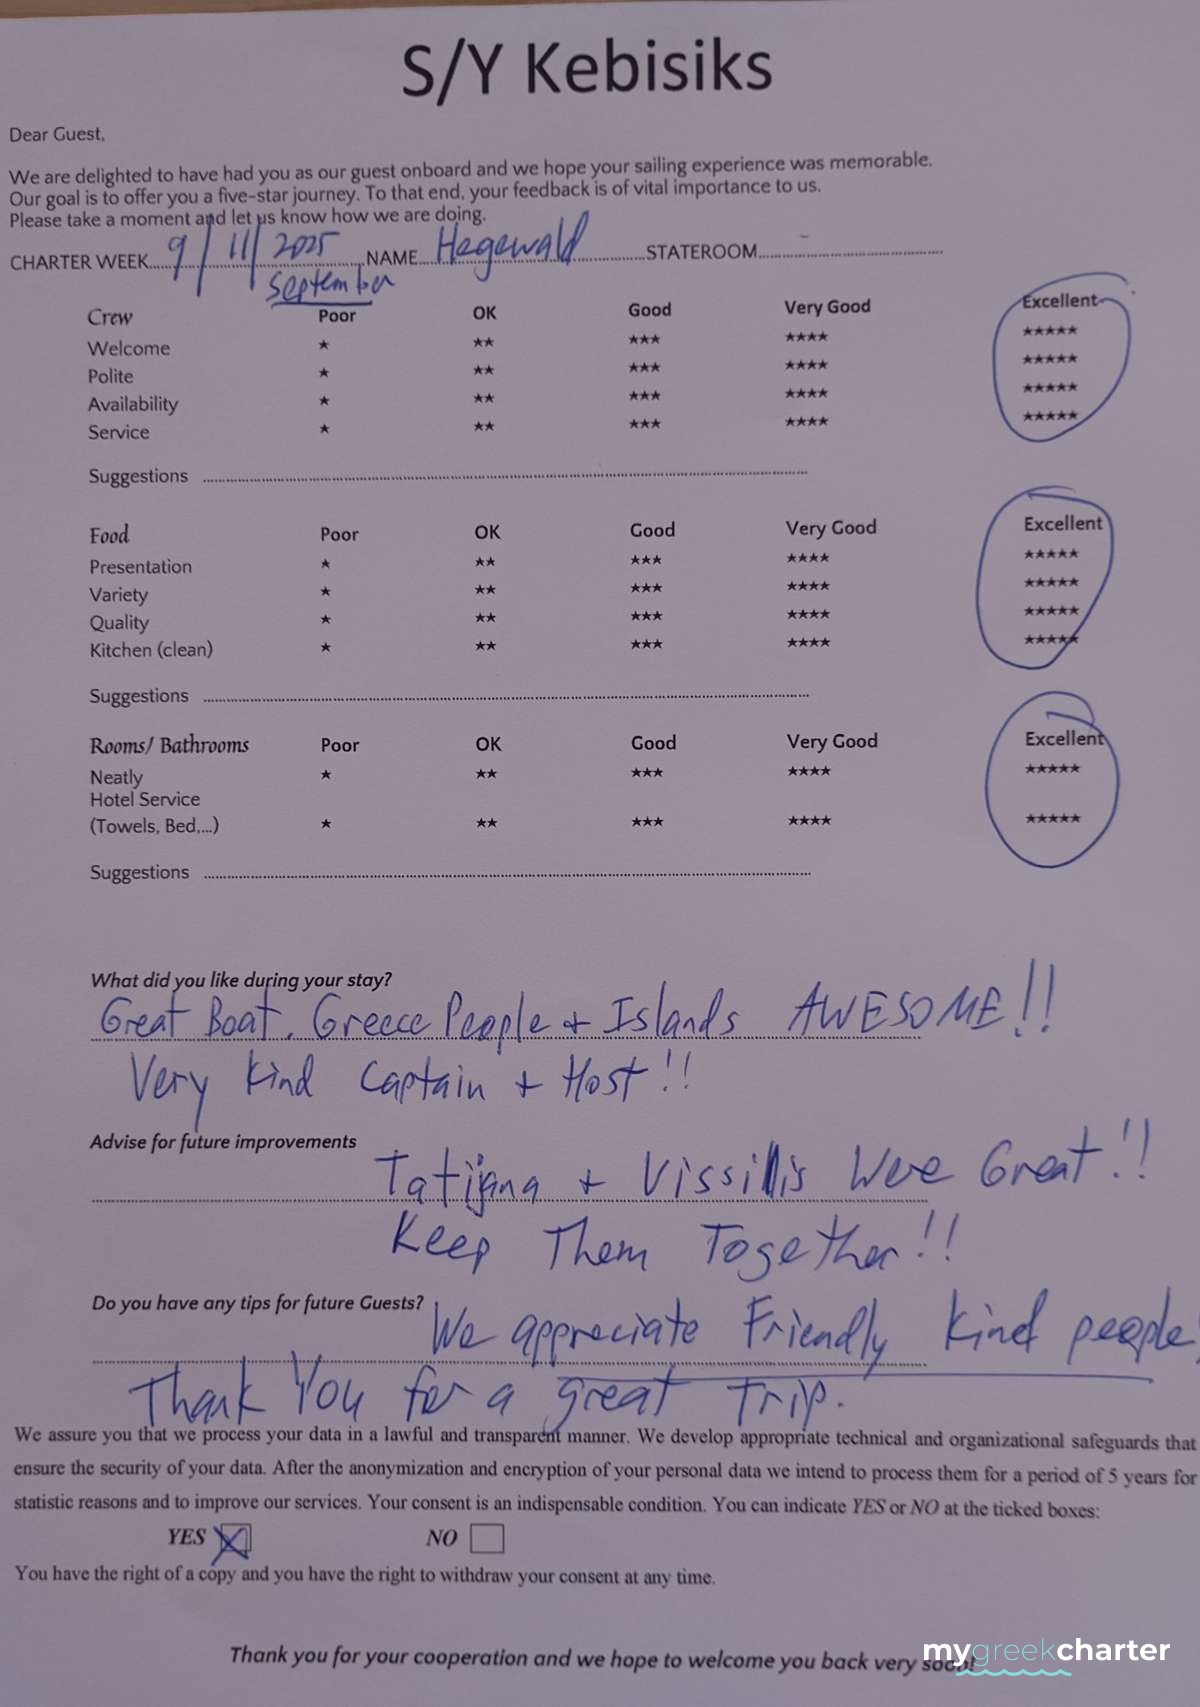 S/Y Kebisiks
Dear Guest,
We are delighted to have had you as our guest onboard and we hope your sailing experience was memorable.
Our goal is to offer you a five-star journey. To that end, your feedback is of vital importance to us.
Please take a moment and let us know how we are doing.
CHARTER WEEK 9/11/2025 NAME Hegewald STATEROOM
September
Crew Poor OK Good Very Good Excellent
Welcome ★ ★★ ★★★ ★★★★ ★★★★★
Polite ★ ★★ ★★★ ★★★★ ★★★★★
Availability ★ ★★ ★★★ ★★★★ ★★★★★
Service ★ ★★ ★★★ ★★★★ ★★★★★
Suggestions
Food Poor OK Good Very Good Excellent
Presentation ★ ★★ ★★★ ★★★★ ★★★★★
Variety ★ ★★ ★★★ ★★★★ ★★★★★
Quality ★ ★★ ★★★ ★★★★ ★★★★★
Kitchen (clean) ★ ★★ ★★★ ★★★★ ★★★★★
Suggestions
Rooms/ Bathrooms Poor OK Good Very Good Excellent
Neatly ★ ★★ ★★★ ★★★★ ★★★★★
Hotel Service
(Towels, Bed,...) ★ ★★ ★★★ ★★★★ ★★★★★
Suggestions
What did you like during your stay?
Great Boat, Greece People + Islands AWESOME!!
Very Kind Captain + Host!!
Advise for future improvements
Tatijana + Vissillis Were Great!!
Keep Them Together!!
Do you have any tips for future Guests?
We appreciate Friendly Kind people,
Thank You for a great Trip.
We assure you that we process your data in a lawful and transparent manner. We develop appropriate technical and organizational safeguards that
ensure the security of your data. After the anonymization and encryption of your personal data we intend to process them for a period of 5 years for
statistic reasons and to improve our services. Your consent is an indispensable condition. You can indicate YES or NO at the ticked boxes:
YES NO
You have the right of a copy and you have the right to withdraw your consent at any time.
Thank you for your cooperation and we hope to welcome you back very soon!
mygreekcharter